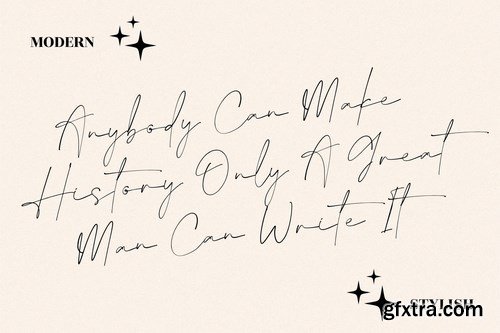 MODERN
Anybody Can Make
History Only A Great
Man Can Write It
STYLISH
gfxtra.com